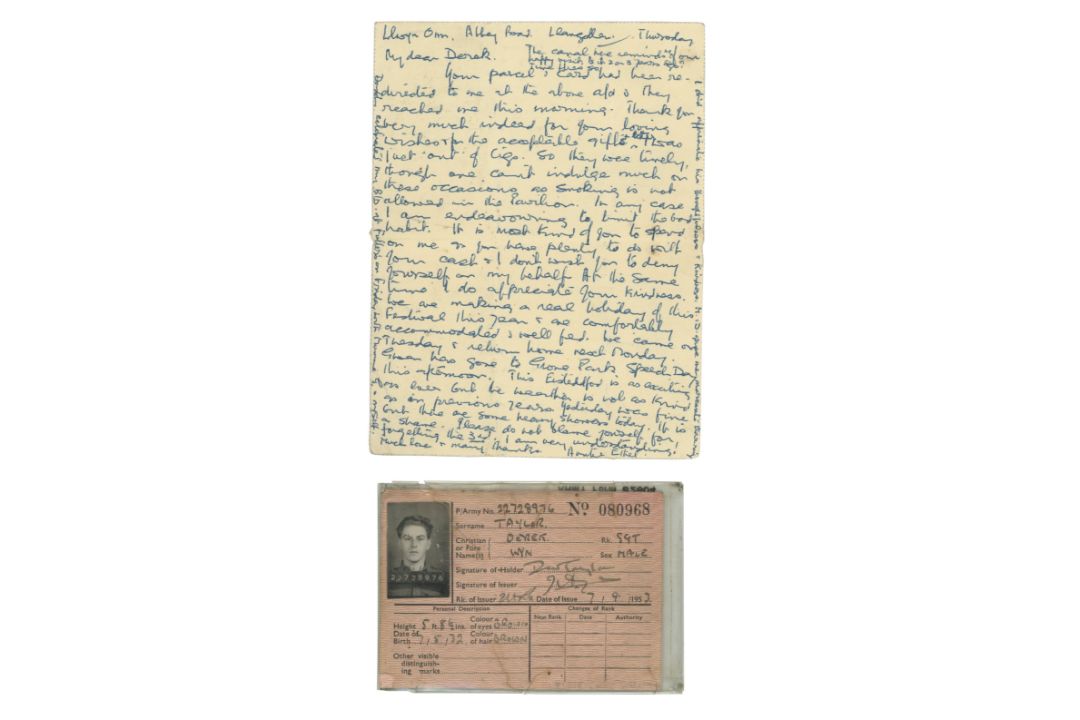 Llwyn Onn. Abbey Road. Llangollen. Thursday
My dear Derek.
The canal here reminds of our
happy visits
Your parcel & card had been re-
directed to me at the above add & they
reached me this morning. Thank you
very much indeed for your loving
wishes & for the acceptable gifts. I was
just out of cigs. So they were timely,
though one can't indulge much on
these occasions as smoking is not
allowed in the Pavilion. In any case
I am endeavouring to limit the bad
habit. It is most kind of you to spend
on me as you have plenty to do with
your cash & I don't wish you to deny
yourself on my behalf. At the same
time I do appreciate your kindness.
We are making a real holiday of this
Festival this year & are comfortably
accommodated & well fed. We came on
Tuesday & return home next Monday.
has gone to Grove Park Speech Day
this afternoon. This Eisteddfod is as exciting
as ever but the weather is not as kind
as on previous years. Yesterday was fine
but there are some heavy showers today. It is
a shame. Please do not blame yourself for
forgetting the 3rd. I am very understanding.
Much love & many thanks. Auntie Ethel.
P/Army No. 22728976 No 080968
Surname TAYLOR.
Christian or Fore Name(s) DEREK. Rk. SGT
WYN Sex MALE
Signature of Holder
Signature of Issuer
Rk. of Issuer Date of Issue 7, 9, 1953
22728976
Personal Description Changes of Rank
Height 5 ft. 8½ ins. Colour of eyes
New Rank Date Authority
Date of Birth 7, 5, 32 Colour of hair BROWN
Other visible
distinguish-
ing marks